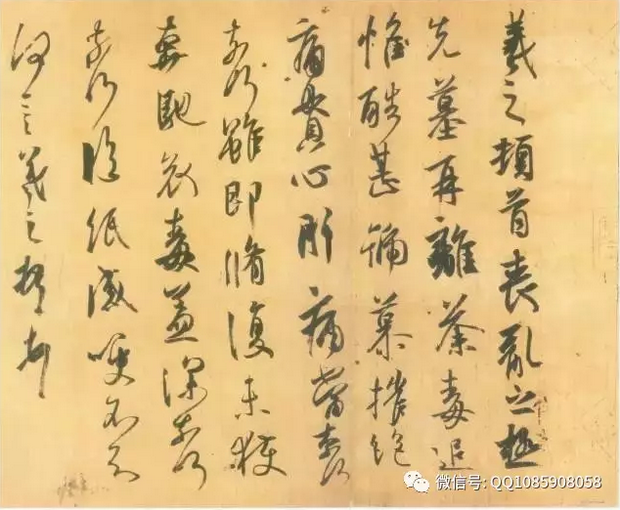 羲之頓首喪亂之極
先墓再離荼毒追
惟酷甚號慕摧絕
痛貫心肝痛當奈何
奈何雖即脩復未獲
奔馳哀毒益深奈何
奈何臨紙感哽不知
何言羲之頓首頓首
微信号: QQ1085908058